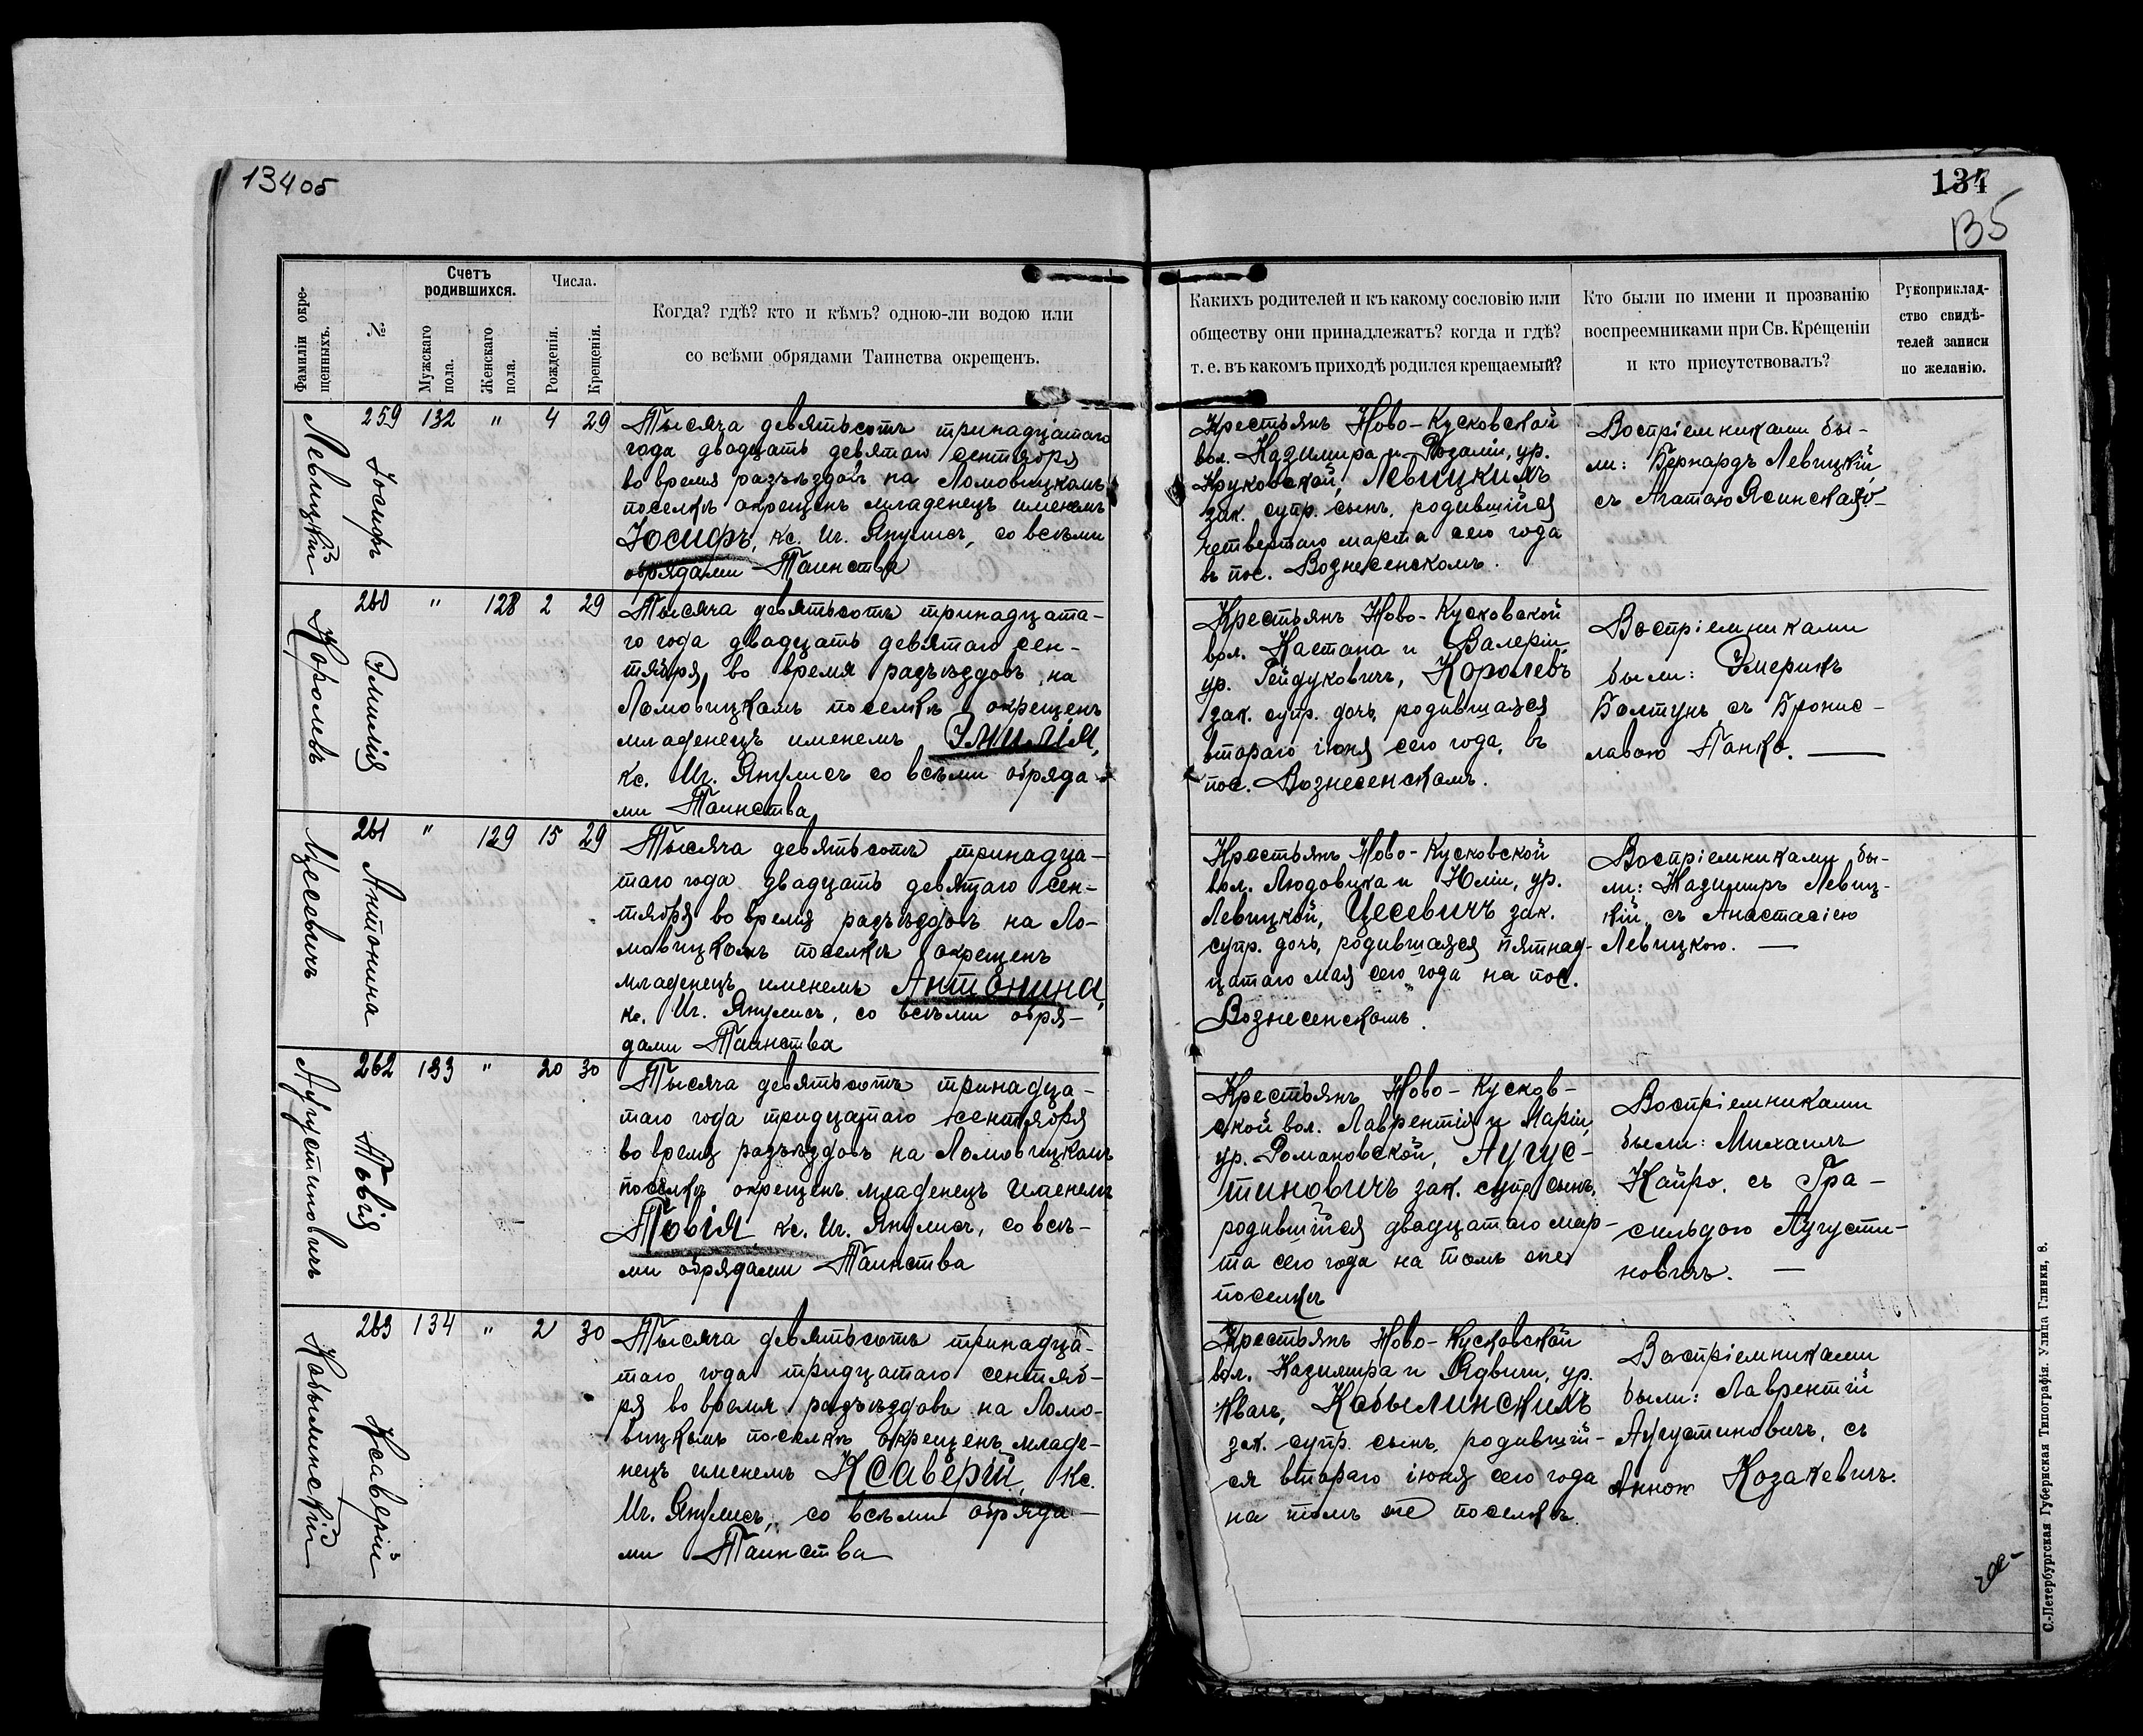 134 об
134
135
Фамиліи окре-
щенныхъ.
№
Счетъ
родившихся.
Мужскаго
пола.
Женскаго
пола.
Числа.
Рожденія.
Крещенія.
Когда? гдѣ? кто и кѣмъ? одною-ли водою или
со всѣми обрядами Таинства окрещенъ.
Какихъ родителей и къ какому сословію или
обществу они принадлежатъ? когда и гдѣ?
т. е. въ какомъ приходѣ родился крещаемый?
Кто были по имени и прозванію
воспреемниками при Св. Крещеніи
и кто присутствовалъ?
Рукоприклад-
ство свидѣ-
телей записи
по желанію.
Левицкій
Іосифъ
259 132 " 4 29
Тысяча девятьсотъ тринадцатаго
года двадцать девятаго сентября
во время разъѣздовъ на Ломовицкомъ
поселкѣ окрещенъ младенецъ именемъ
Іосифъ, кс. Иг. Янулисъ, со всѣми
обрядами Таинства
Крестьянъ Ново-Кусковской
вол. Казимира и Розаліи, ур.
Круковской, Левицкихъ
зак. супр. сынъ, родившійся
четвертаго марта сего года
въ пос. Вознесенскомъ.
Воспріемниками бы-
ли: Бернардъ Левицкій,
съ Агатою Ясинскаю
Королевъ
Эмилія
260 " 128 2 29
Тысяча девятьсотъ тринадцата-
го года двадцать девятаго сен-
тября, во время разъѣздовъ на
Ломовицкомъ поселкѣ окрещенъ
младенецъ именемъ Эмилія,
кс. Иг. Янулисъ со всѣми обряда-
ми Таинства
Крестьянъ Ново-Кусковской
вол. Каетана и Валеріи,
ур. Гейдуковичъ, Королевъ
зак. супр. дочь, родившаяся
втораго іюня сего года, въ
пос. Вознесенскомъ.
Воспріемниками
были: Эмерикъ
Болтунь съ Бронис-
лавою Панко.
Цесевичъ
Антонина
261 " 129 15 29
Тысяча девятьсотъ тринадца-
таго года двадцать девятаго сен-
тября во время разъѣздовъ на Ло-
мовицкомъ поселкѣ окрещенъ
младенецъ именемъ Антонина,
кс. Иг. Янулисъ, со всѣми обря-
дами Таинства
Крестьянъ Ново-Кусковской
вол. Людовика и Юліи, ур.
Левицкой, Цесевичъ зак.
супр. дочь, родившаяся пятнад-
цатаго мая сего года на пос.
Вознесенскомъ.
Воспріемниками бы-
ли: Казимиръ Левиц-
кій, съ Анастасіею
Левицкою.
Аугустиновичъ
Товія
262 133 " 20 30
Тысяча девятьсотъ тринадца-
таго года тридцатаго сентября
во время разъѣздовъ на Ломовицкомъ
поселкѣ окрещенъ младенецъ именемъ
Товія, кс. Иг. Янулисъ, со всѣ-
ми обрядами Таинства
Крестьянъ Ново-Кусков-
ской вол. Лаврентія и Маріи,
ур. Романовской, Аугус-
тиновичъ зак. супр. сынъ,
родившійся двадцатаго мар-
та сего года на томъ же
поселкѣ
Воспріемниками
были: Михаилъ
Кайро, съ Гра-
сильдою Аугусти-
новичъ.
Кобылинскій
Ксаверій
263 134 " 2 30
Тысяча девятьсотъ тринадца-
таго года тридцатаго сентяб-
ря во время разъѣздовъ на Ломо-
вицкомъ поселкѣ окрещенъ младе-
нецъ именемъ Ксаверій, Кс.
Иг. Янулисъ, со всѣми обряда-
ми Таинства
Крестьянъ Ново-Кусковской
вол. Казимира и Ядвиги, ур.
Квачъ, Кобылинскихъ
зак. супр. сынъ, родившій-
ся втораго іюня сего года
на томъ же поселкѣ.
Воспріемниками
были: Лаврентій
Аугустиновичъ, съ
Анною Козакевичъ.
С.-Петербургская Губернская Типографія. Улица Глинки, 8.